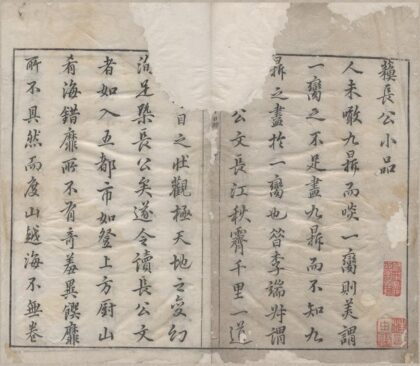 蘓長公小品
人未噉九鼎而啖一臠則美謂
一臠之不足盡九鼎而不知九
鼎之盡於一臠也昔李端叔謂
公文長江秋霽千里一道
目之壯觀極天地之變幻
足槩長公矣遂令讀長公文
者如入五都市如登上方厨山
肴海錯靡所不有奇羞異饌靡
所不具然而度山越海不無卷